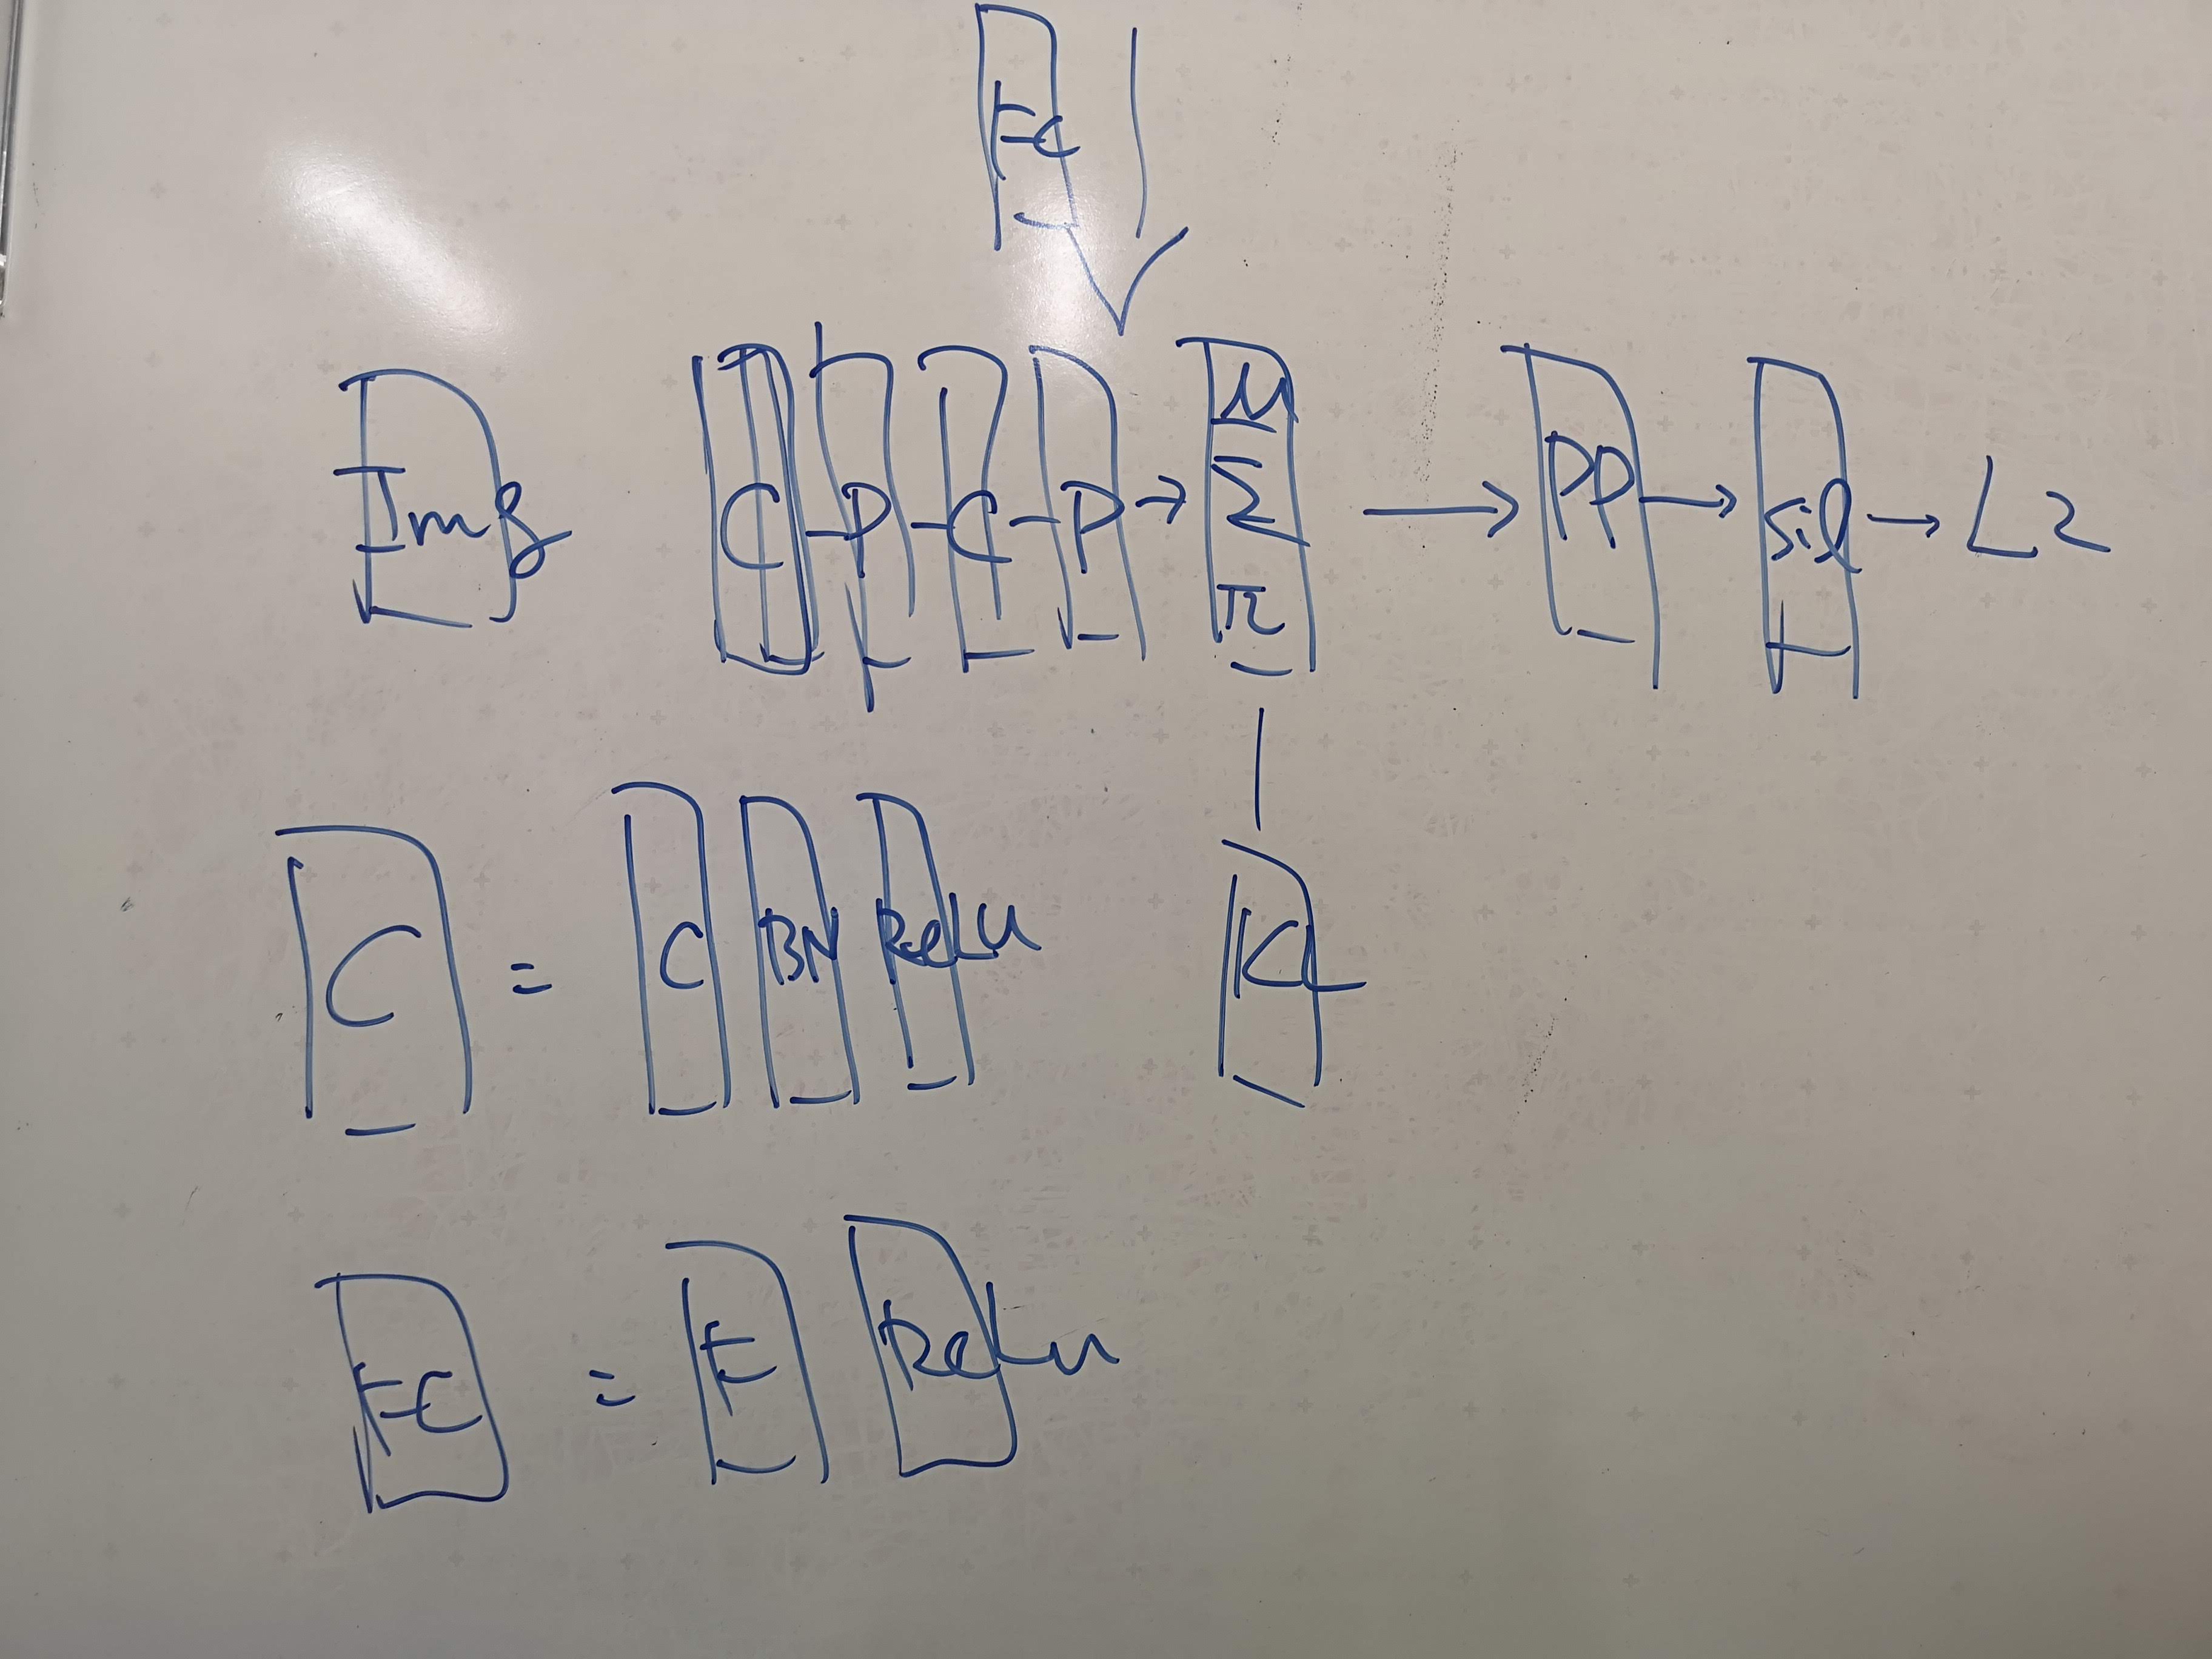 FC
Img C - P - C - P → μ Σ π → PP → sil → L2
C = C BN ReLU KL
FC = F ReLu